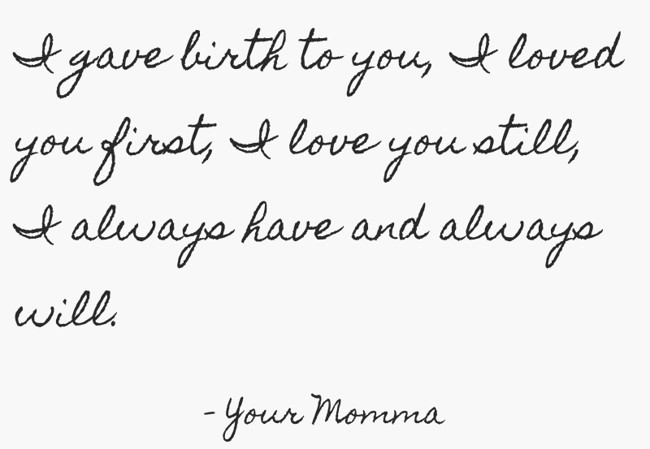 I gave birth to you, I loved
you first, I love you still,
I always have and always
will.
- Your Momma